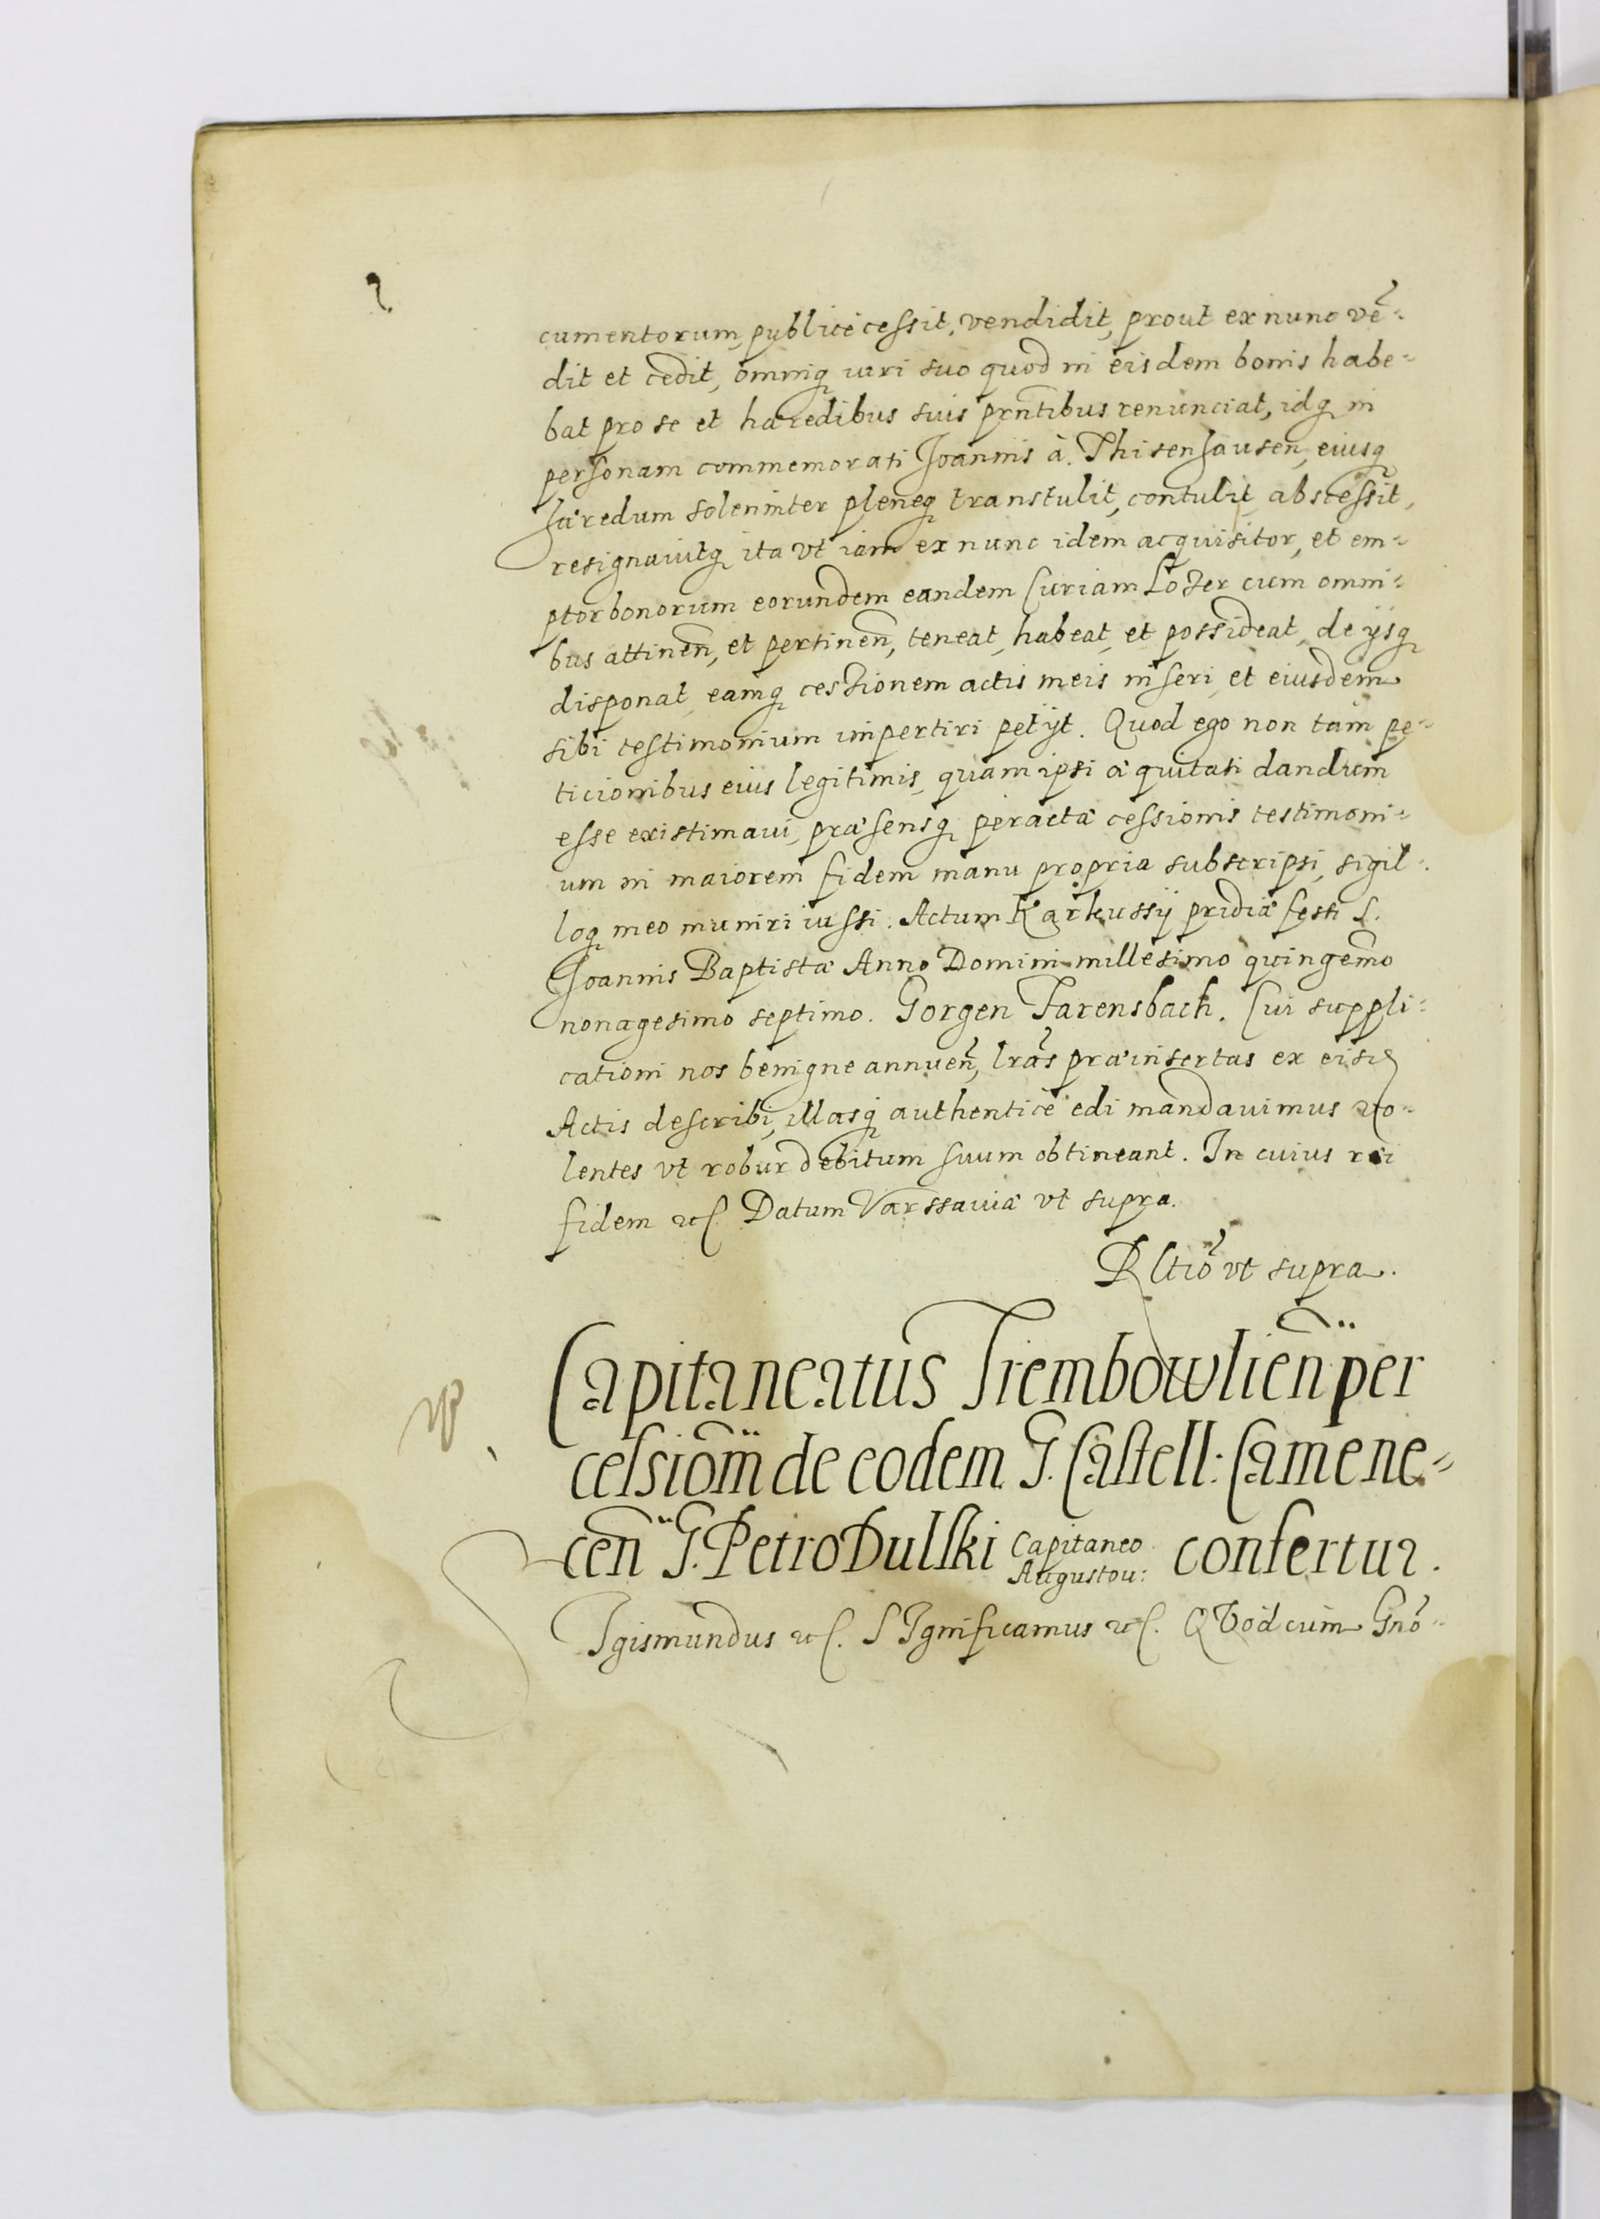 cumentorum, publicè cessit, vendidit, prout ex nunc vẽ-
dit et cedit, omniq; iuri suo quod in eisdem bonis habe-
bat pro se et hæredibus suis prñtibus renunciat, idq; in
personam commemorati Joannis à Thisenhausen, eiusq;
hæredum solenniter pleneq; transtulit, contulit, abscessit,
resignavitq; ita vt iam ex nunc idem acquisitor, et em-
ptor bonorum eorundem eandem Curiam Lozer cum omni-
bus attineñ, et pertineñ, teneat, habeat, et possideat, de ijsq;
disponat, eamq; cessionem actis meis inseri, et eiusdem
sibi testimonium impertiri petijt. Quod ego non tam pe-
ticionibus eius legitimis, quam ipsi æquitati dandum
esse existimavi, præsensq; peractæ cessionis testimoni-
um in maiorem fidem manu propria subscripsi, sigil-
loq; meo muniri iussi. Actum Karkussij pridiæ festi S.
Joannis Baptistæ Anno Domini millesimo quingemo
nonagesimo septimo. Gorgen Farensbach. Cui suppli-
cationi nos benigne annueñ, lras præinsertas ex eisd
Actis describi, illasq; authenticè edi mandavimus vo-
lentes vt robur debitum suum obtineant. In cuius rei
fidem etc. Datum Varssaviæ vt supra.
Rltio vt supra.
Capitaneatus Trembowlieñ per
cessionẽ de eodem G. Castell: Camene-
ceñ G. Petro Dulski Capitaneo Augustou: confertur.
Sigismundus etc. SIgnificamus etc. QVod cum Gnõ-